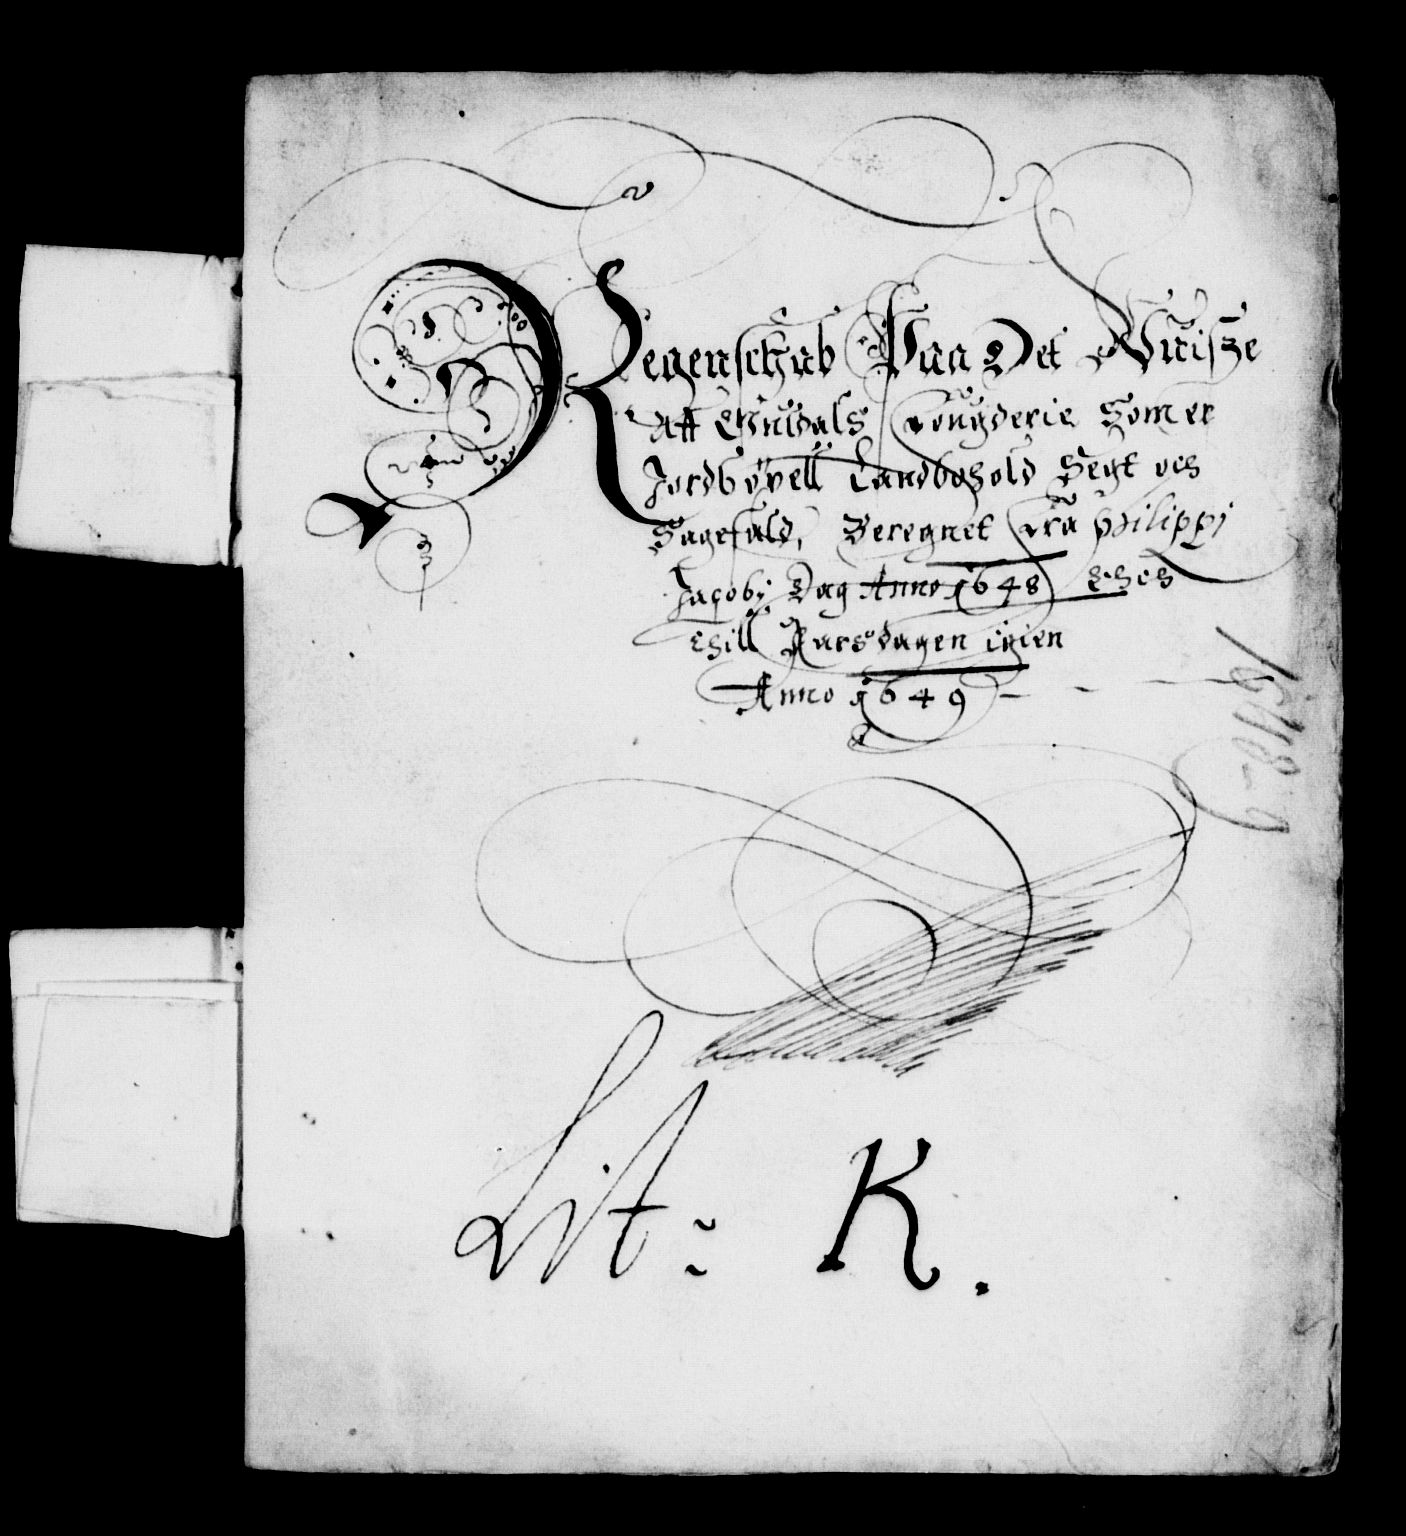 Regenschab Paa Det Wisze
Aff Eynwals Fougderie Som er
Jordbogell Landbohold Segt och
Sagefald, Beregnet Fra Philippj
Jacobj Dag Anno 1648 Och
Thill Aarsdagen igien
Anno 1649
1648-9
Lit: K.